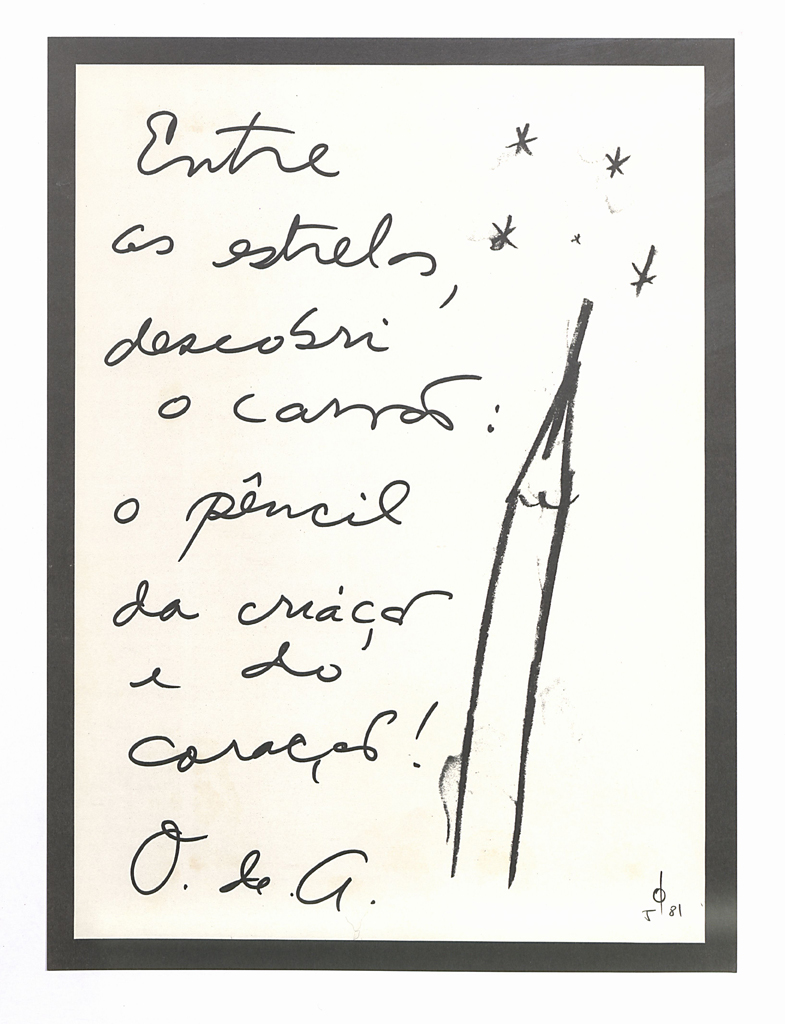 Entre
as estrelas,
descobri
o carvão:
o pêncil
da criação
e do
coração!
O. de A.
J 81